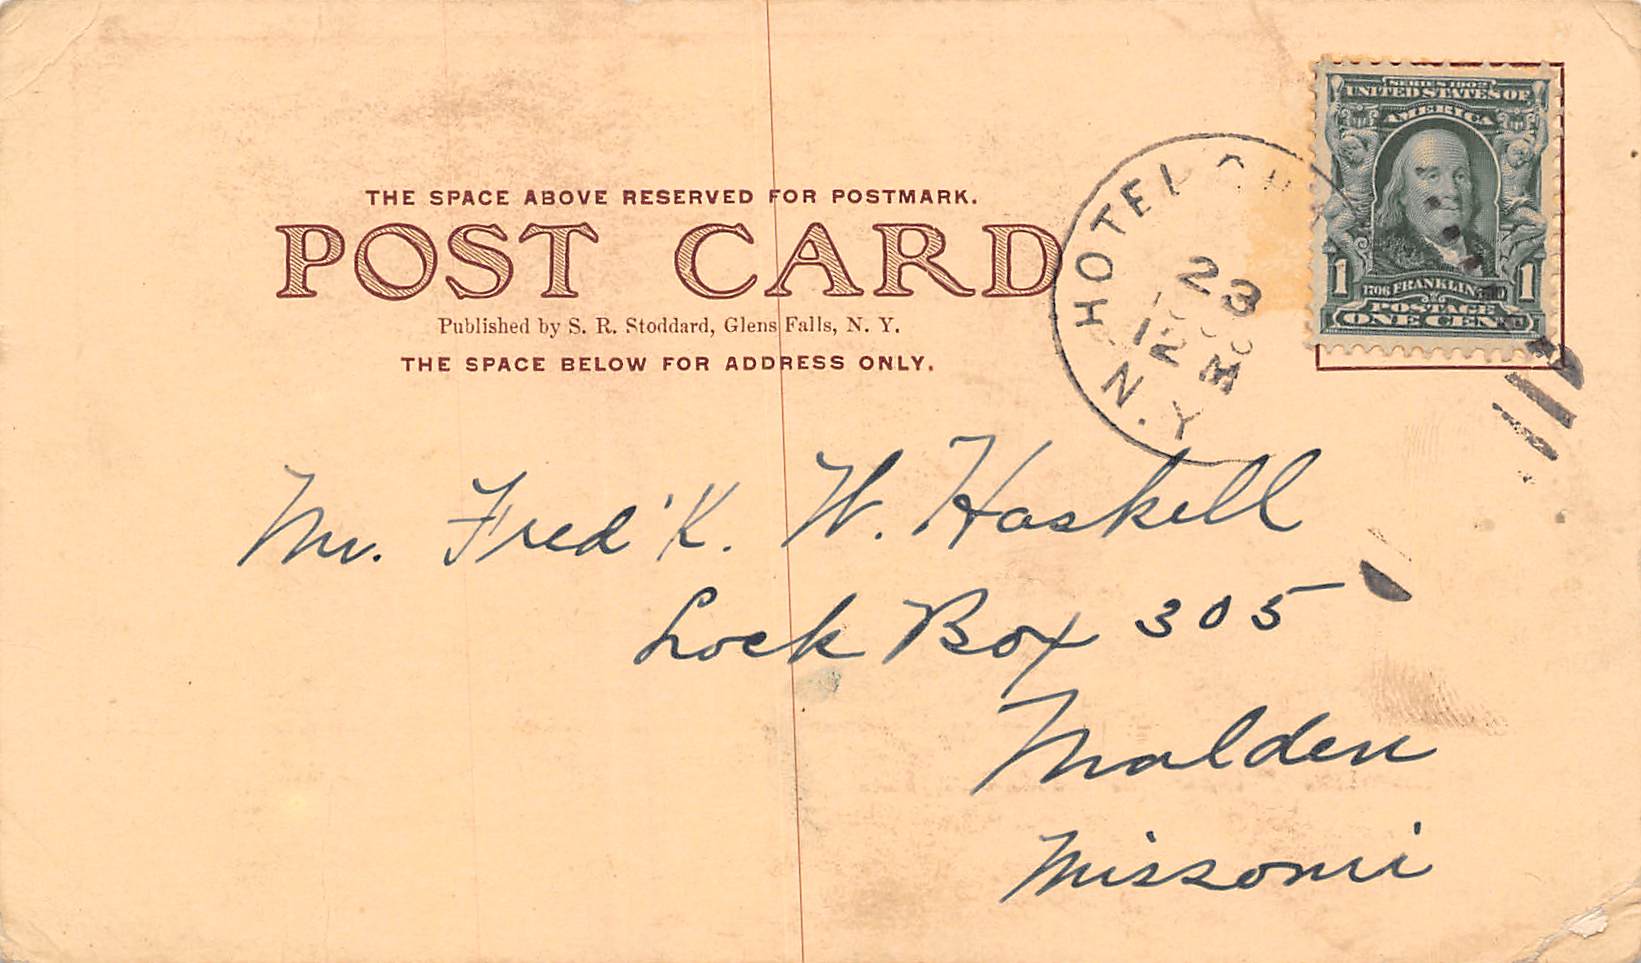 THE SPACE ABOVE RESERVED FOR POSTMARK.
POST CARD
Published by S. R. Stoddard, Glens Falls, N. Y.
THE SPACE BELOW FOR ADDRESS ONLY.
SERIES 1902
UNITED STATES OF
AMERICA
1706 FRANKLIN
1 1
POSTAGE
ONE CENT
HOTEL
23
12 M
N.Y.
Mr. Fred'K. W. Haskell
Lock Box 305
Malden
Missouri